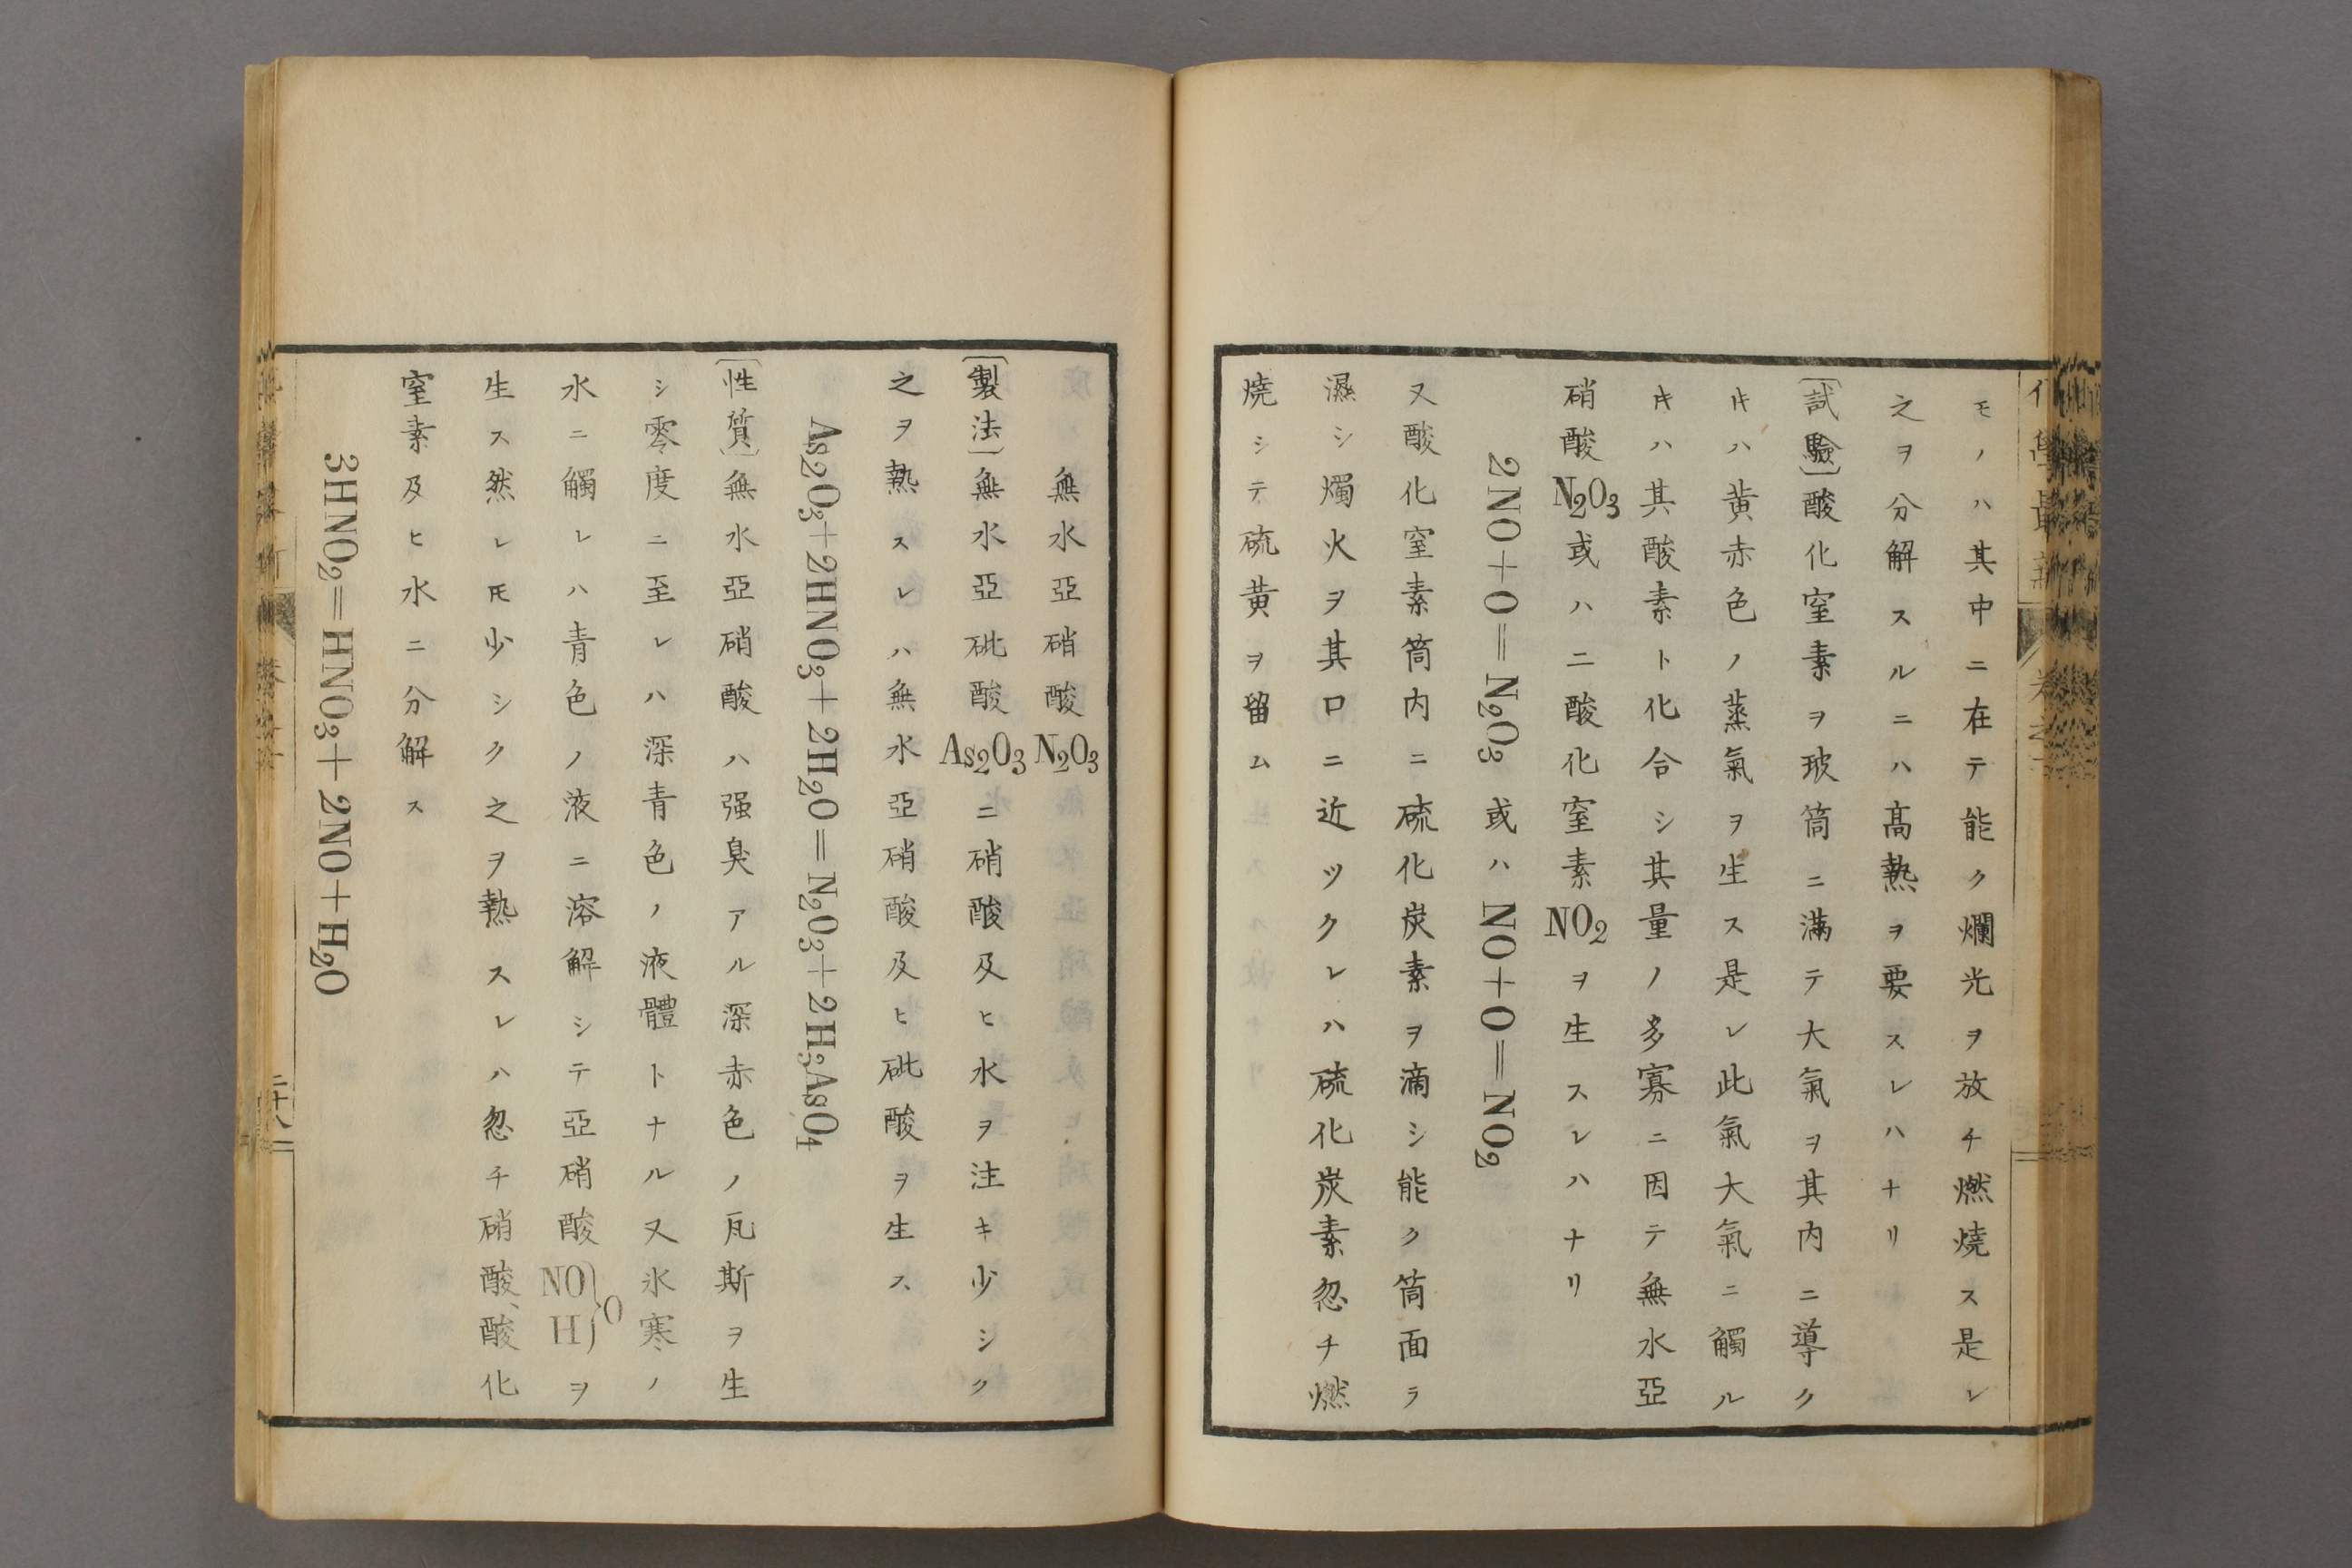 モノハ其中ニ在テ能ク爛光ヲ放チ燃燒ス是レ
之ヲ分解スルニハ高熱ヲ要スレハナリ
〔試驗〕酸化窒素ヲ玻筒ニ滿テ大氣ヲ其内ニ導ク
𪜈ハ黄赤色ノ蒸氣ヲ生ス是レ此氣大氣ニ觸ル
𪜈ハ其酸素ト化合シ其量ノ多寡ニ因テ無水亞
硝酸N₂O₃或ハ二酸化窒素NO₂ヲ生スレハナリ
2NO+O=N₂O₃ 或ハ NO+O=NO₂
又酸化窒素筒内ニ硫化炭素ヲ滴シ能ク筒面ヲ
濕シ燭火ヲ其口ニ近ツクレハ硫化炭素忽チ燃
燒シテ硫黄ヲ留ム
無水亞硝酸N₂O₃
〔製法〕無水亞砒酸As₂O₃ニ硝酸及ヒ水ヲ注キ少シク
之ヲ熱スレハ無水亞硝酸及ヒ砒酸ヲ生ス
As₂O₃+2HNO₃+2H₂O=N₂O₃+2H₃AsO₄
〔性質〕無水亞硝酸ハ强臭アル深赤色ノ瓦斯ヲ生
シ零度ニ至レハ深青色ノ液體トナル又氷寒ノ
水ニ觸レハ青色ノ液ニ溶解シテ亞硝酸NO H}Oヲ
生ス然レ𪜈少シク之ヲ熱スレハ忽チ硝酸、酸化
窒素及ヒ水ニ分解ス
3HNO₂=HNO₃+2NO+H₂O
二十八